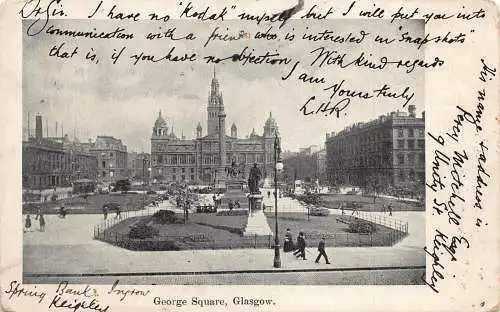 Dr Sir. I have no "Kodak" myself, but I will put you into
communication with a friend who is interested in "Snapshots"
that is, if you have no objection. With kind regards
I am Yours truly
LHR
His name & address is
Percy Mitchell Esq
9 Unity St
Keighley
Spring Bank, Ingrow
Keighley
George Square, Glasgow.